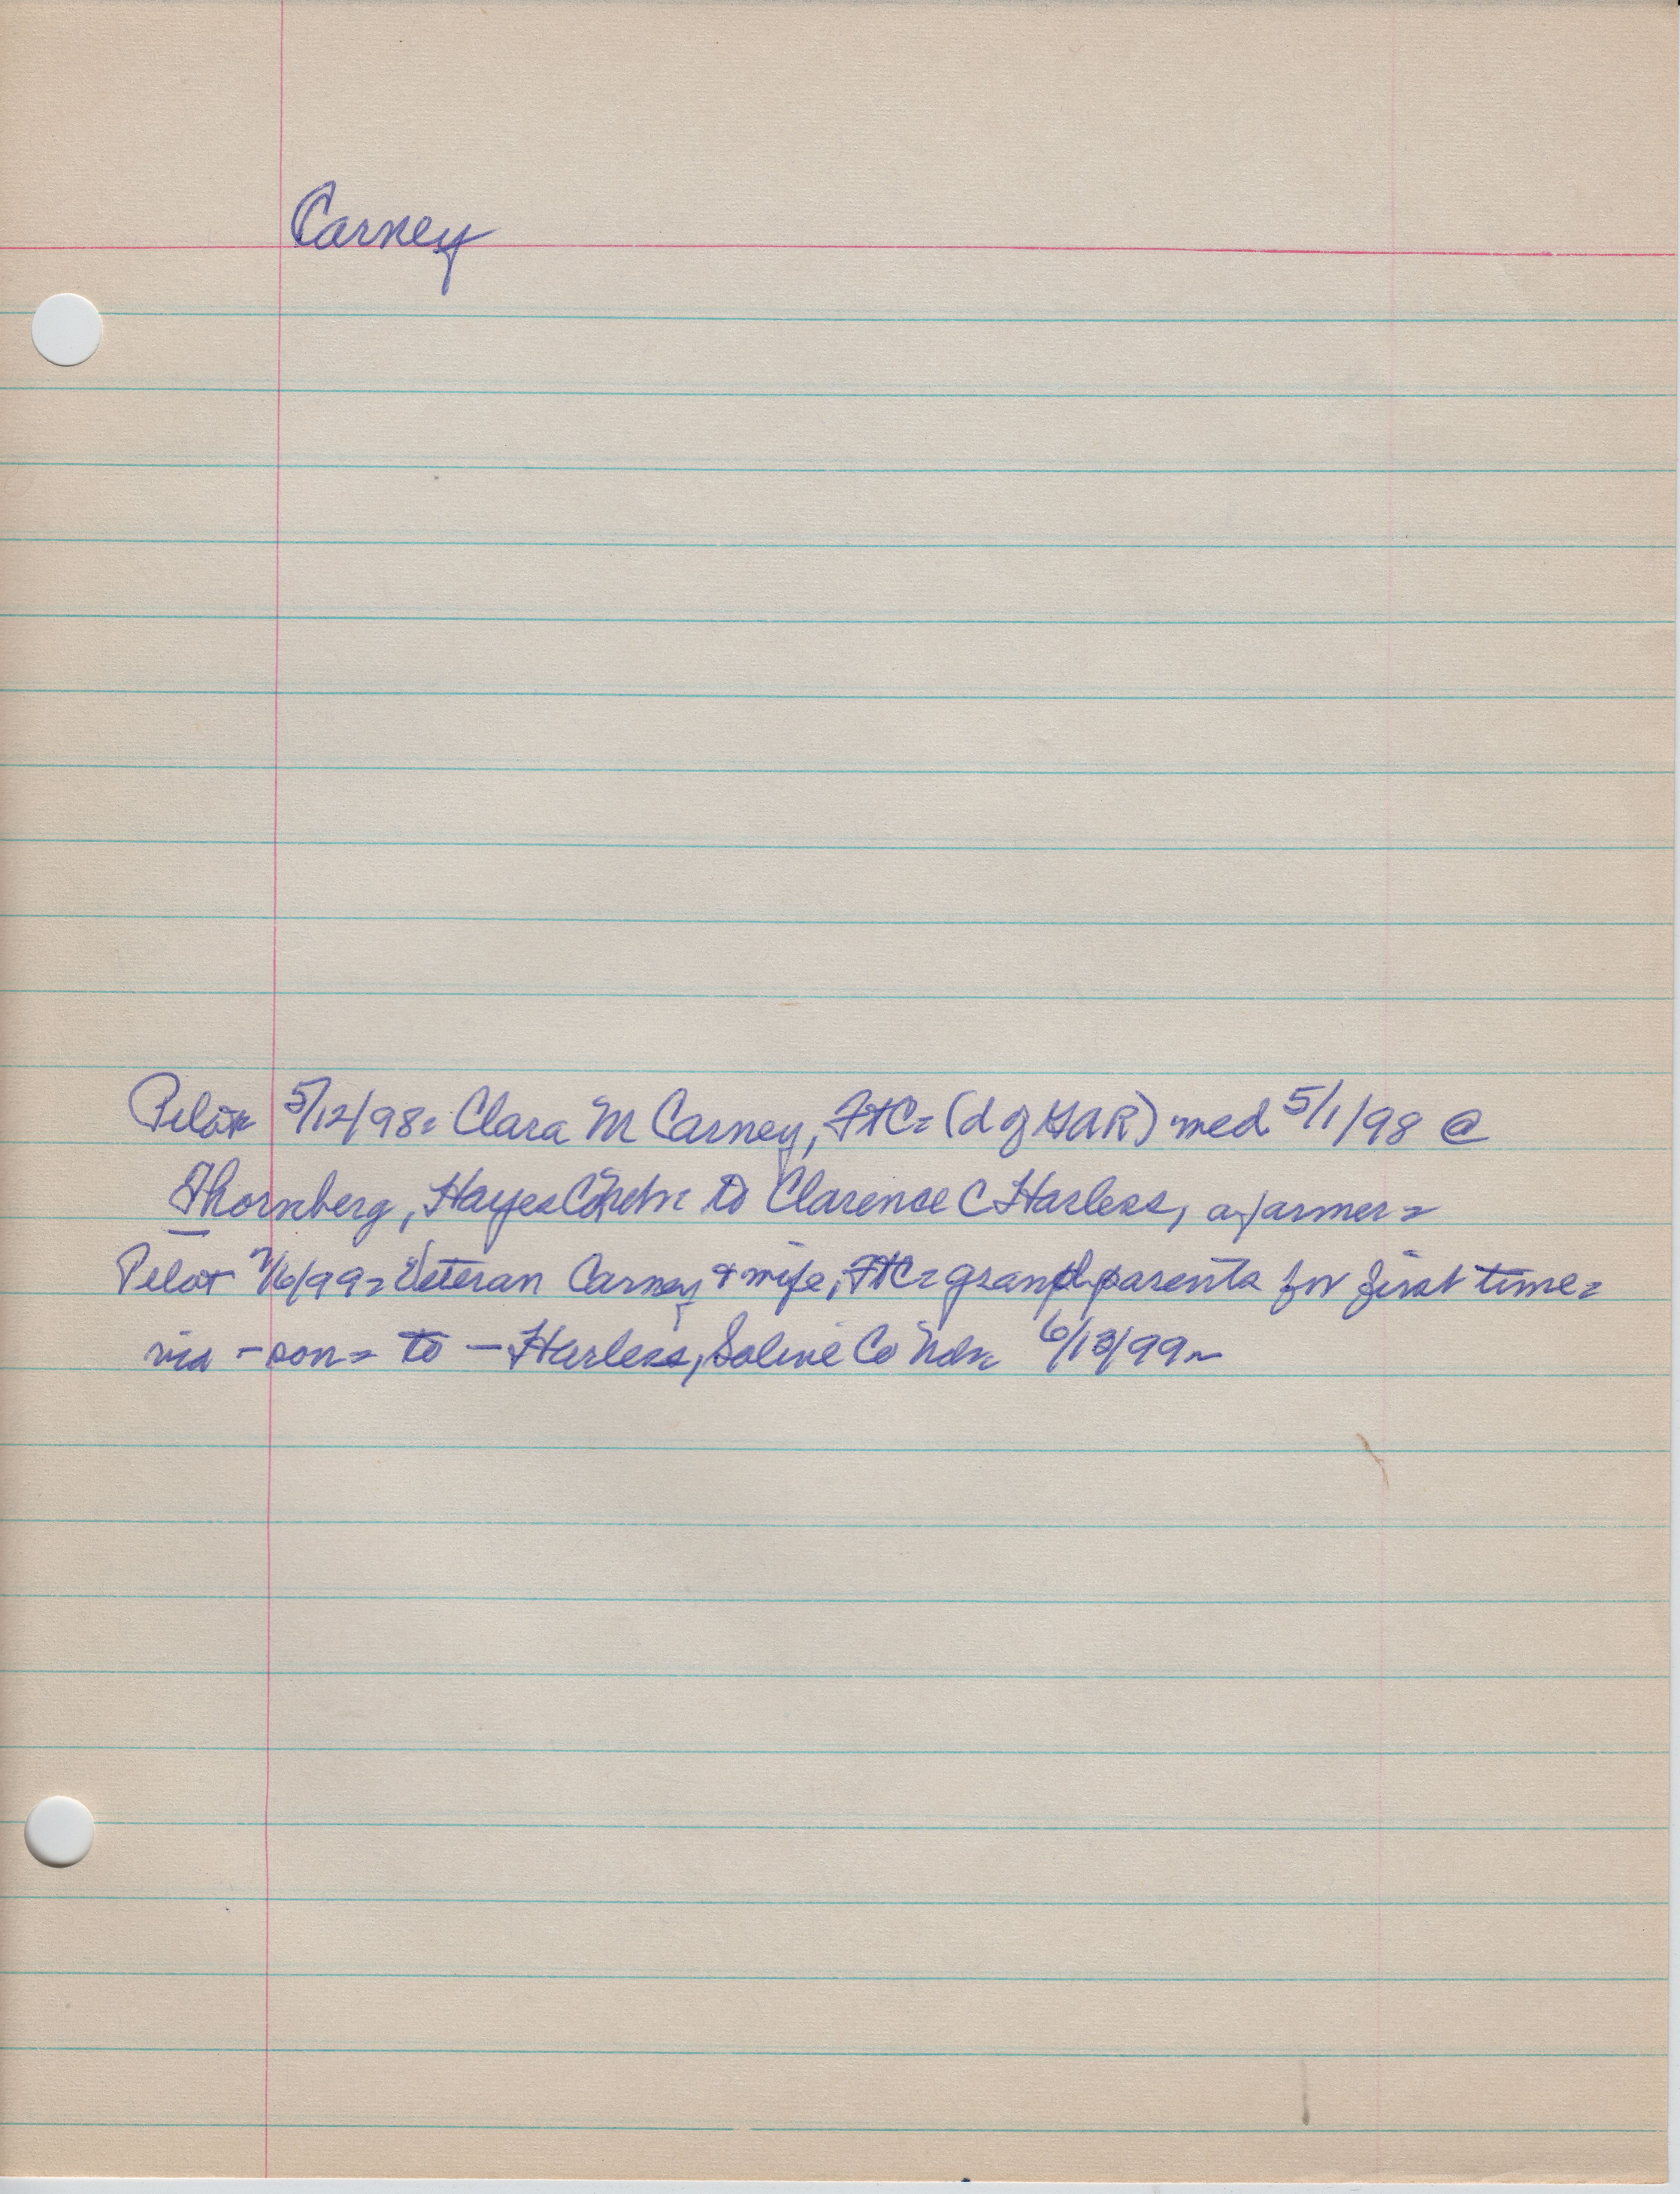 Carney
Pilot 5/12/98= Clara M Carney, FtC= (d of GAR) med 5/1/98 @
Thornberg, Hayes Co Nebr to Clarence C Harless, a farmer=
Pilot 7/6/99= Veteran Carney & wife, FtC= grandparents for first time=
via - son= to - Harless, Saline Co Neb 6/13/99